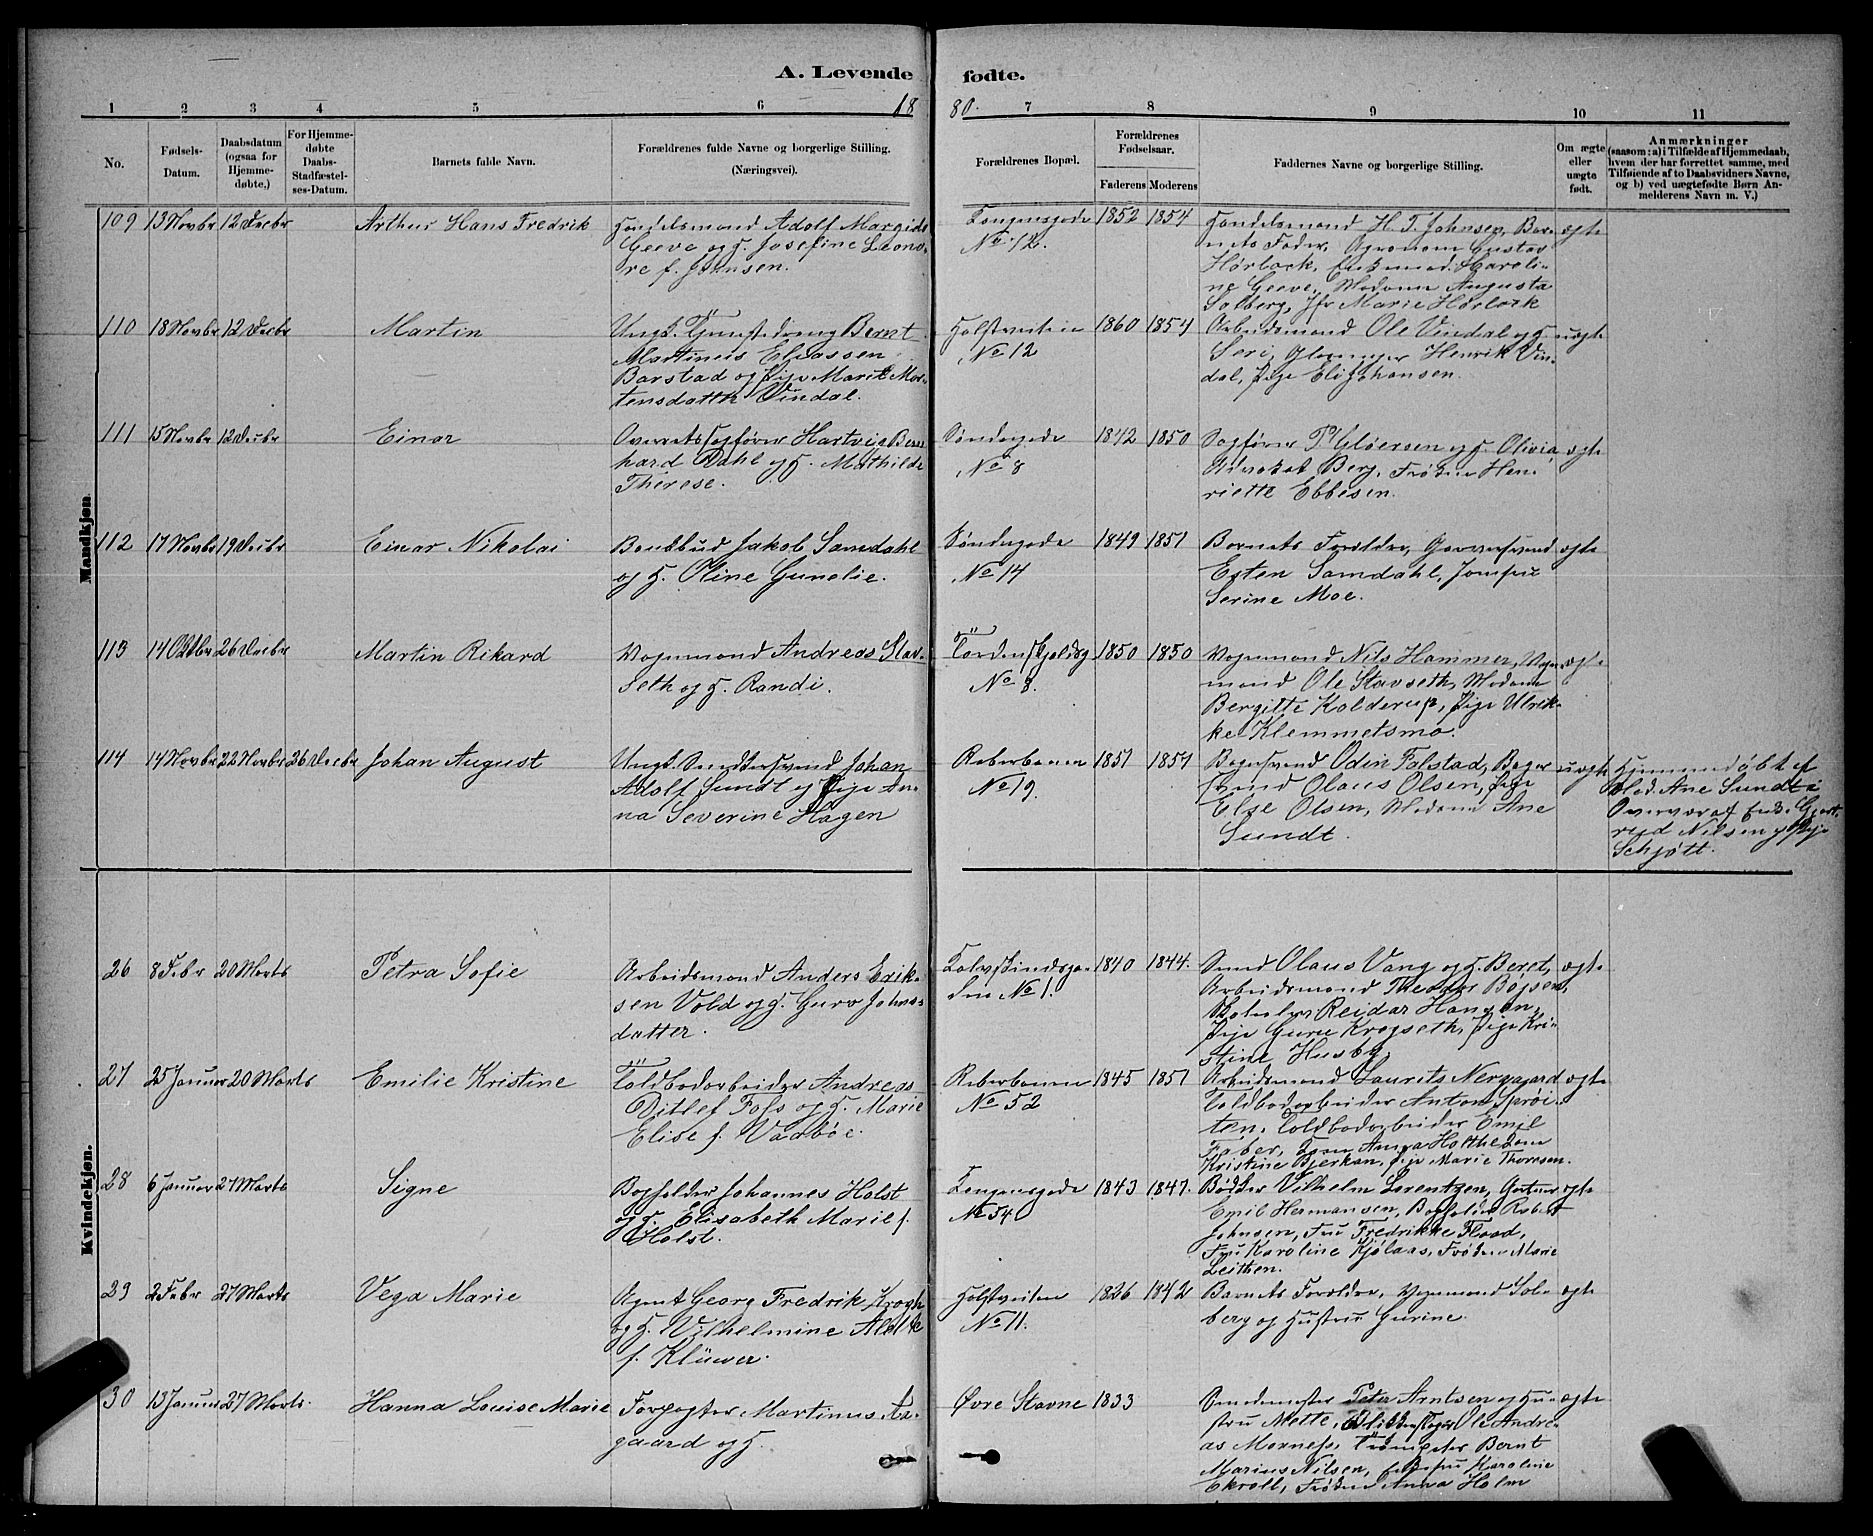 A. Levende fødte.
1 2 3 4 5 6 18 80. 7 8 9 10 11
No.
Fødsels-
Datum.
Daabsdatum
(ogsaa for
Hjemme-
døbte.)
For Hjemme-
døbte
Daabs-
Stadfæstel-
ses-Datum.
Barnets fulde Navn.
Forældrenes fulde Navne og borgerlige Stilling.
(Næringsvei).
Forældrenes Bopæl.
Forældrenes
Fødselsaar.
Faderens
Moderens
Faddernes Navne og borgerlige Stilling.
Om ægte
eller
uægte
født.
Anmærkninger
(saasom: a) i Tilfælde af Hjemmedaab,
hvem der har forrettet samme, med
Tilføiende af to Daabsvidners Navne,
og b) ved uægtefødte Børn An-
melderens Navn m. V.)
Mandkjøn
109 13 Novbr 12 Decbr
Arthur Hans Fredrik
Handelsmand Adolf Margido
Greve og H. Josefine Leono-
re f. Johnsen.
Kongensgade
No 72.
1852 1854
Handelsmand H. T. Johnsen, Bar-
nets Fader, Agronom Gustav
Hørlock, Enkemad. Karoli-
ne Greve, Madam Augusta
Solberg, Jfr Marie Hørlock
ægte
110 18 Novbr 12 Decbr
Martin
Ungk. Tjenestedreng Bernt
Martinus Eliassen
Barstad og Pige Marit Mor-
tensdatter Vindal.
Holstveiten
No 12
1860 1854
Arbeidsmand Ole Vindal og H.
Seri, Henrik Vin-
dal, Pige Eli Johansen.
uægte
111 15 Novbr 12 Decbr
Einar
Overretssagfører Hartvig Bern-
hard Dahl og H. Mathilde
Therese.
Søndregade
No 8
1842 1850
Sagfører Gløersen og H. Olivia,
Advokat Berg, Frøken Hen-
riette Ebbesen.
ægte
112 17 Novbr 19 Decbr
Einar Nikolai
Bankbud Jakob Samdahl
og H. Oline Gunelie.
Søndregade
No 14
1849 1851
Barnets Forældre, Garversvend
Esten Samdahl, Jomfru
Serine Moe.
ægte
113 14 Octbr 26 Decbr
Martin Rikard
Vognmand Andreas Stav-
seth og H. Randi.
Tordenskjoldsg
No 8.
1850 1850
Vognmand Nils Hammer, Vogn-
mand Ole Stavseth, Madam
Bergitte Kolderup, Pige Ulrik-
ke Klemmetsmo.
ægte
114 14 Novbr 22 Novbr 26 Decbr
Johan August
Ungk. Snedkersvend Johan
Adolf Sundt og Pige An-
na Severine Hagen
Reberbanen
No 19.
1851 1851
Bagersvend Odin Folstad, Bager
svend Olaus Olsen, Pige
Else Olsen, Madam Ane
Sundt.
uægte
Hjemmedøbt af
Mad. Ane Sundt i
Overvær af Enke Gjert-
rud Nilsen og Pige
Schjøtt.
Kvindekjøn.
26 8 Febr 20 Marts
Petra Sofie
Arbeidsmand Anders Erik-
sen Vold og H. Guro Johns-
datter.
Kalvskindsga-
den No 1.
1840 1844.
Svend Olaus Vang og H. Beret,
Arbeidsmand Theodor Bojsen,
Skolelev Reidar Hansen,
Pige Guru Krogseth, Pige Kri-
stine Husby
ægte
27 25 Januar 20 Marts
Emilie Kristine
Toldbodarbeider Andreas
Ditlef Fals og H. Marie
Elise f. Vadbøe.
Reberbanen
No 52
1845 1851
Arbeidsmand Laurits Nergaard
Toldbodarbeider Anton Sprøi-
ten, Toldbodarbeider Emil
Faber, Anna Holthe
Kristine Bjerkan, Pige Marie Thoresen.
ægte
28 6 Januar 27 Marts
Signe
Bogholder Johannes Holst
og H. Elisabeth Marie f.
Holst.
Kongensgade
No 54
1843 1847.
Bødker Vilhelm Lorentzen, Gartner
Emil Hermansen, Bogholder Robert
Johnsen, Fru Fredrikke Flood,
Fru Karoline Kjølaas, Frøken Marie
Leithen.
ægte
29 2 Febr 27 Marts
Vega Marie
Agent Georg Fredrik Krogh
og H. Vilhelmine
f. Klüwer.
Holstveiten
No 11.
1826 1842
Barnets Forældre, Vognmand Sol-
berg og Hustru Gurine.
ægte
30 13 Januar 27 Marts.
Hanna Louise Marie
Forpagter Martinus Aa-
gaard og H.
Øvre Stavne
1833
Peter Arntsen og Hu-
stru Mette, Ole Andre-
as Morness, Trompeter Bernt
Marius Nilsen, Karoline
Ekroll, Frøken Anna Holm
ægte